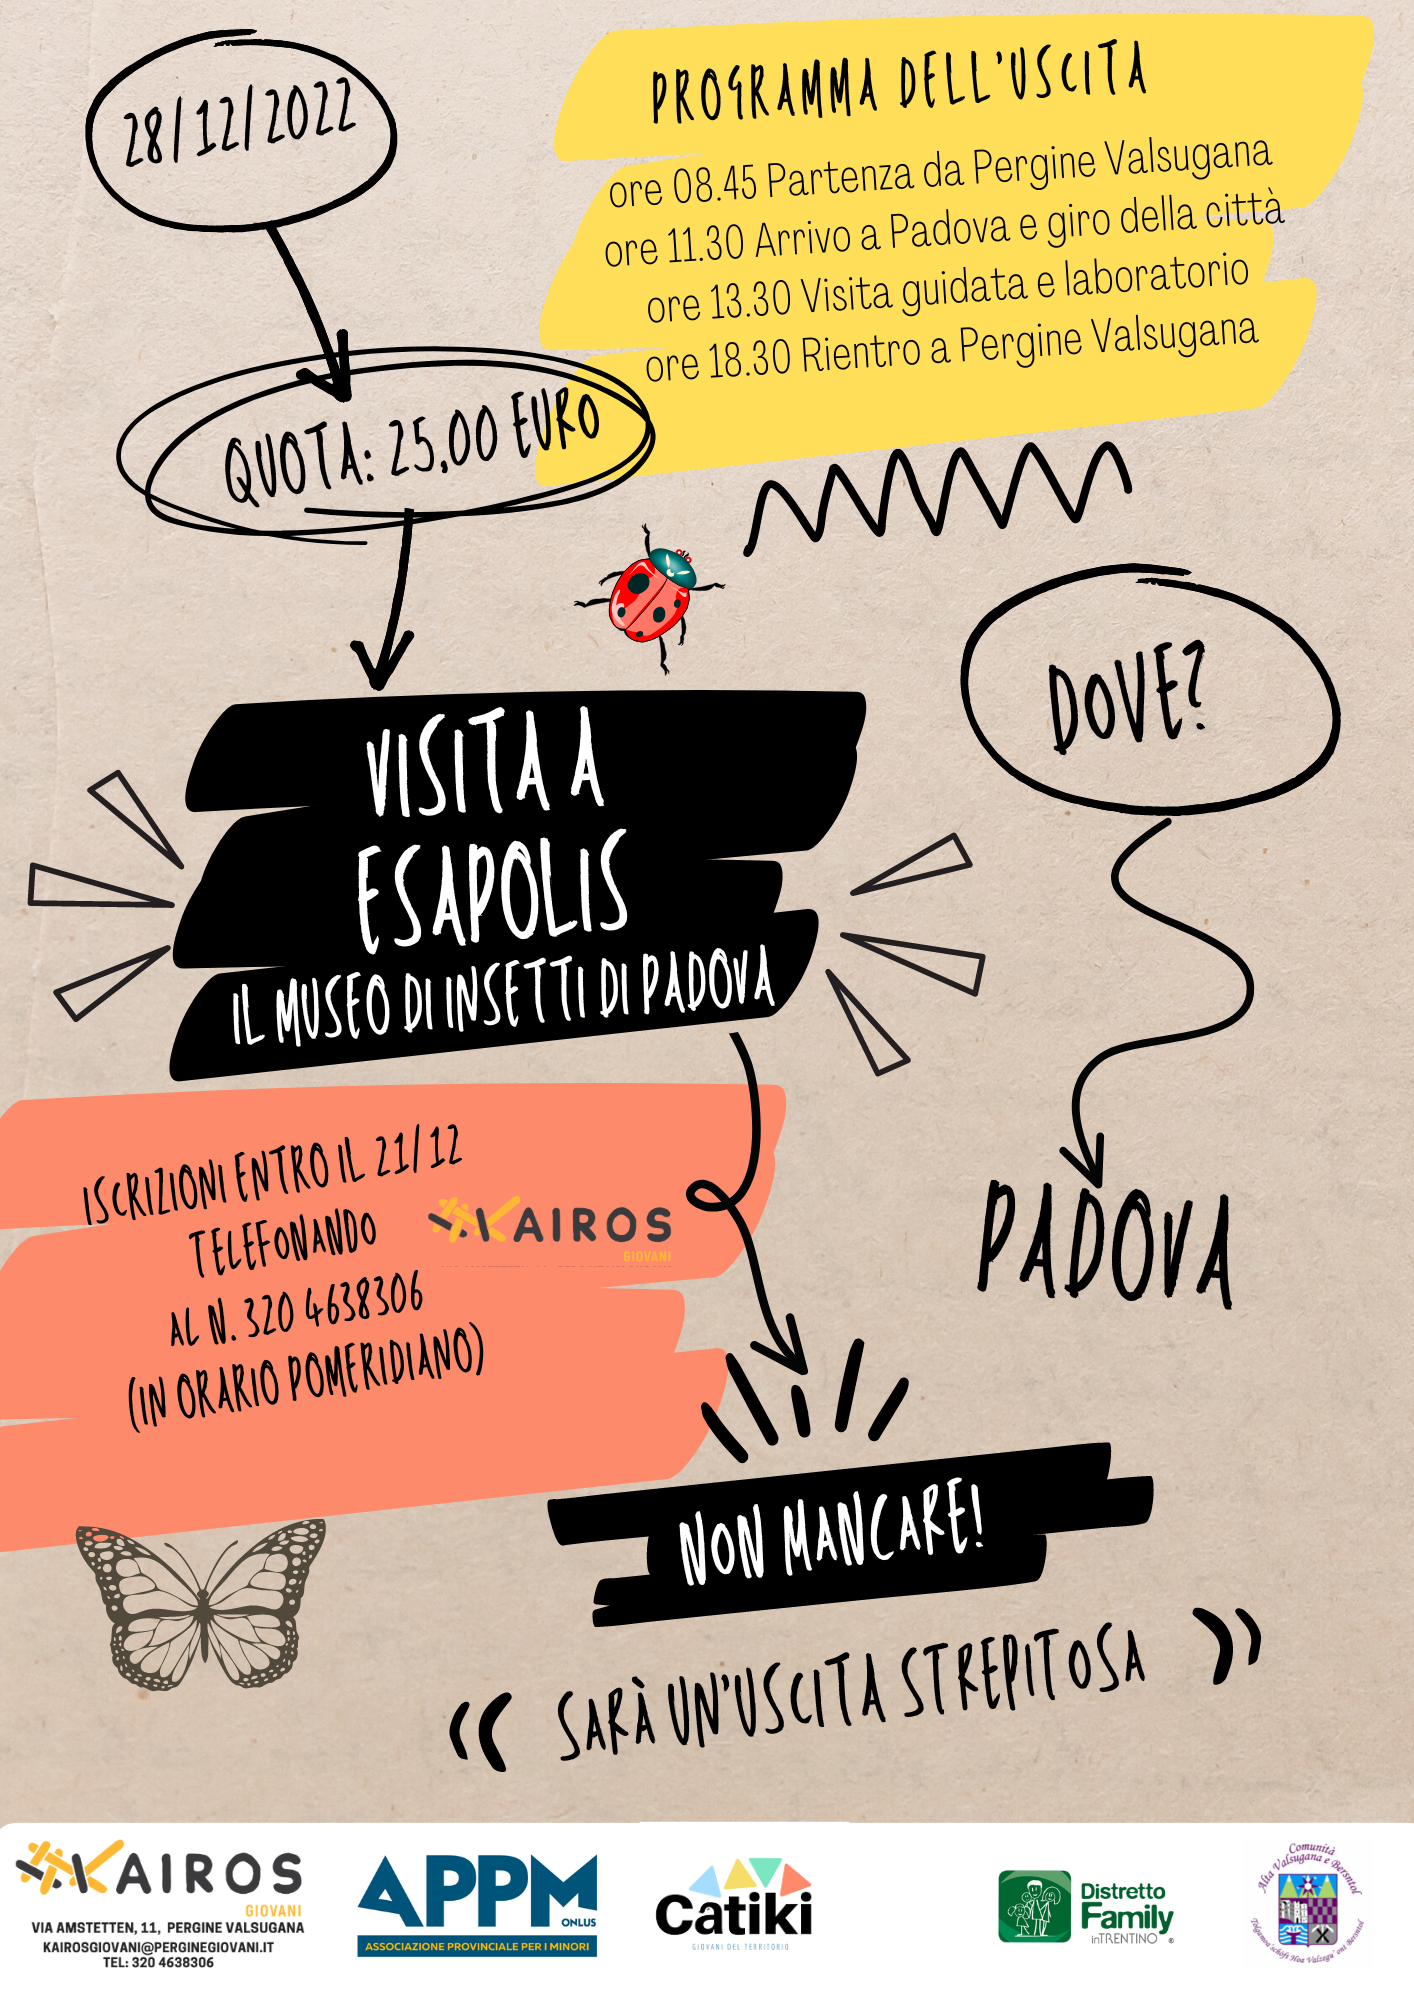 28/12/2022
PROGRAMMA DELL'USCITA
ore 08.45 Partenza da Pergine Valsugana
ore 11.30 Arrivo a Padova e giro della città
ore 13.30 Visita guidata e laboratorio
ore 18.30 Rientro a Pergine Valsugana
QUOTA: 25,00 EURO
DOVE?
PADOVA
VISITA A
ESAPOLIS
IL MUSEO DI INSETTI DI PADOVA
ISCRIZIONI ENTRO IL 21/12
TELEFONANDO
AL N. 320 4638306
(IN ORARIO POMERIDIANO)
KAIROS
GIOVANI
NON MANCARE!
« SARÀ UN'USCITA STREPITOSA »
KAIROS
GIOVANI
VIA AMSTETTEN, 11, PERGINE VALSUGANA
KAIROSGIOVANI@PERGINEGIOVANI.IT
TEL: 320 4638306
APPM
ONLUS
ASSOCIAZIONE PROVINCIALE PER I MINORI
Catiki
GIOVANI DEL TERRITORIO
Distretto
Family
inTRENTINO ®
Comunità
Alta Valsugana e Bersntol
Tolgamoa'schòft Hoa Valzegu' ont Bersntol